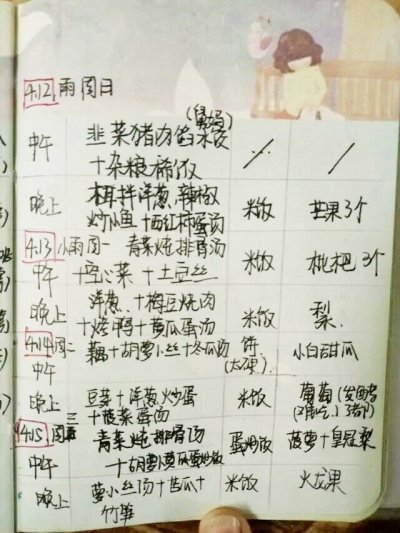 4.12 雨 周日
(舅妈)
韭菜猪肉馅
中午
十杂粮稀饭
木耳拌洋葱、辣椒
晚上 炒小鱼 十西红柿蛋汤 米饭 芒果3个
4.13 小雨 周一 青菜炖排骨汤
中午 十空心菜 十土豆丝 米饭 枇杷 3个
晚上 洋葱、十梅豆烧肉
十烤鸭十黄瓜蛋汤 米饭 梨.
4.14 周二 藕十胡萝卜丝十冬瓜汤 饼. 小白甜瓜
中午
晚上 豆芽十洋葱炒蛋 米饭 葡萄
十菠菜蛋汤
4.15 周三 青菜炖排骨汤 蛋炒饭 菠萝十皇冠梨
中午 十胡萝卜黄瓜蛋炒饭
晚上 萝卜丝汤十苦瓜十 米饭 火龙果
竹笋